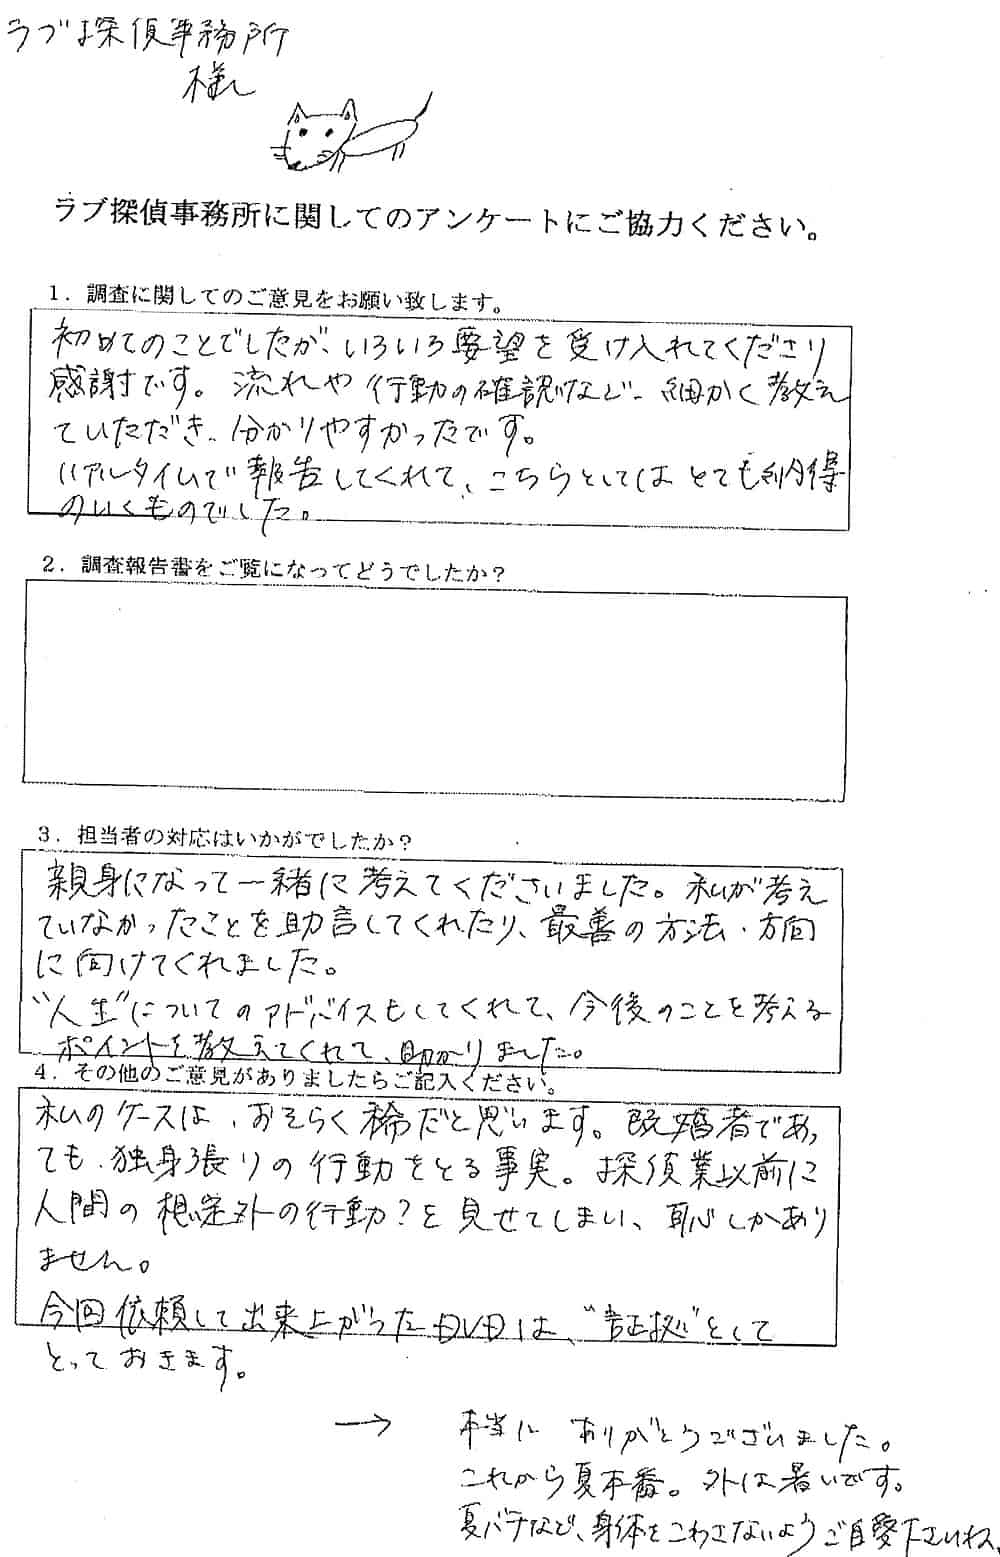 ラブ探偵事務所
様
ラブ探偵事務所に関してのアンケートにご協力ください。
1．調査に関してのご意見をお願い致します。
初めてのことでしたが、いろいろ要望を受け入れてくださり
感謝です。流れや行動の確認など、細かく教え
ていただき、分かりやすかったです。
リアルタイムで報告してくれて、こちらとしてはとても納得
のいくものでした。
2．調査報告書をご覧になってどうでしたか？
3．担当者の対応はいかがでしたか？
親身になって一緒に考えてくださいました。私が考え
ていなかったことを助言してくれたり、最善の方法・方向
に向けてくれました。
"人生"についてのアドバイスもしてくれて、今後のことを考える
ポイントを教えてくれて、助かりました。
4．その他のご意見がありましたらご記入ください。
私のケースは、おそらく稀だと思います。既婚者であっ
ても、独身張りの行動をとる事実。探偵業以前に
人間の想定外の行動？を見せてしまい、恥しかあり
ません。
今回依頼して出来上がったDVDは、"証拠"として
とっておきます。
→ 本当に ありがとうございました。
これから夏本番。外は暑いです。
夏バテなど、身体をこわさないようご自愛下さいね。